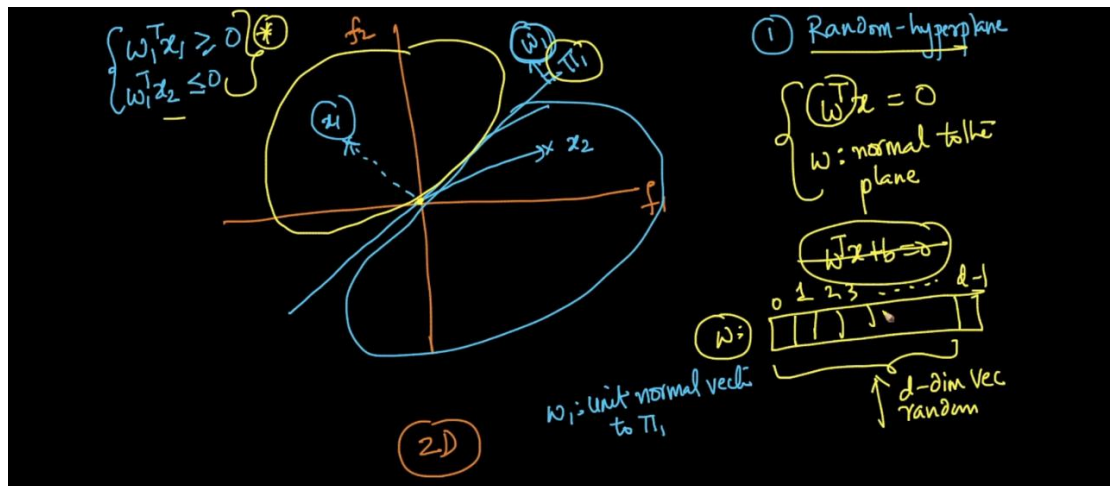 w₁ᵀx₁ ≥ 0
*
w₁ᵀx₂ ≤ 0
f₂
w₁
π₁
x₁
x₂
f₁
① Random-hyperplane
wᵀx = 0
w: normal to the
plane
wᵀx+b=0
0 1 2 3 ...... d-1
w:
d-dim vec
random
w₁: unit normal vect
to π₁
2D